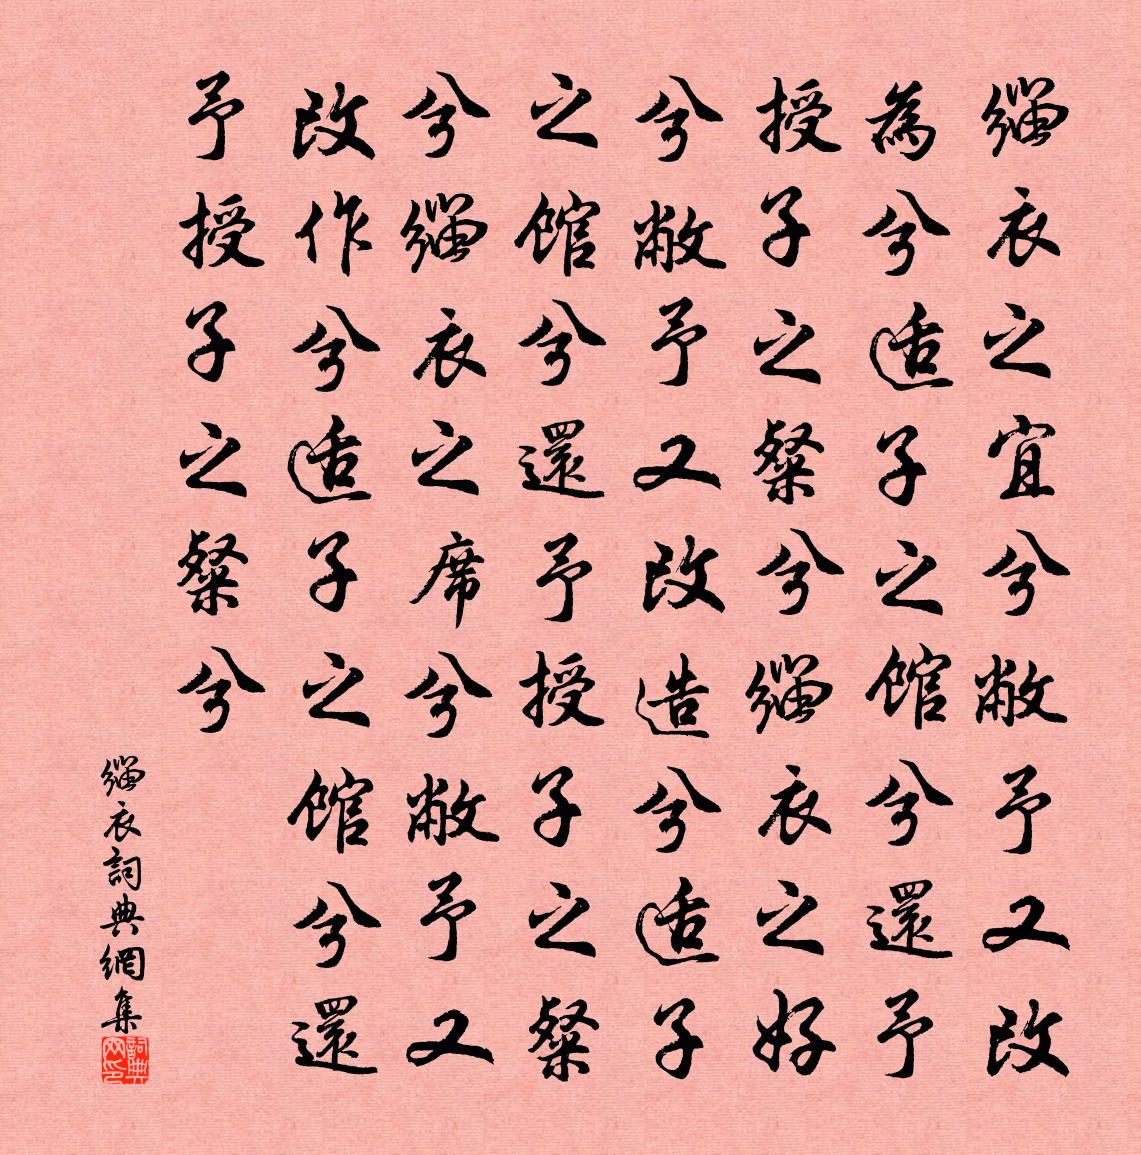 緇衣之宜兮敝予又改
為兮适子之館兮還予
授子之粲兮緇衣之好
兮敝予又改造兮适子
之館兮還予授子之粲
兮緇衣之席兮敝予又
改作兮适子之館兮還
予授子之粲兮
緇衣詞典網集
詞典网印